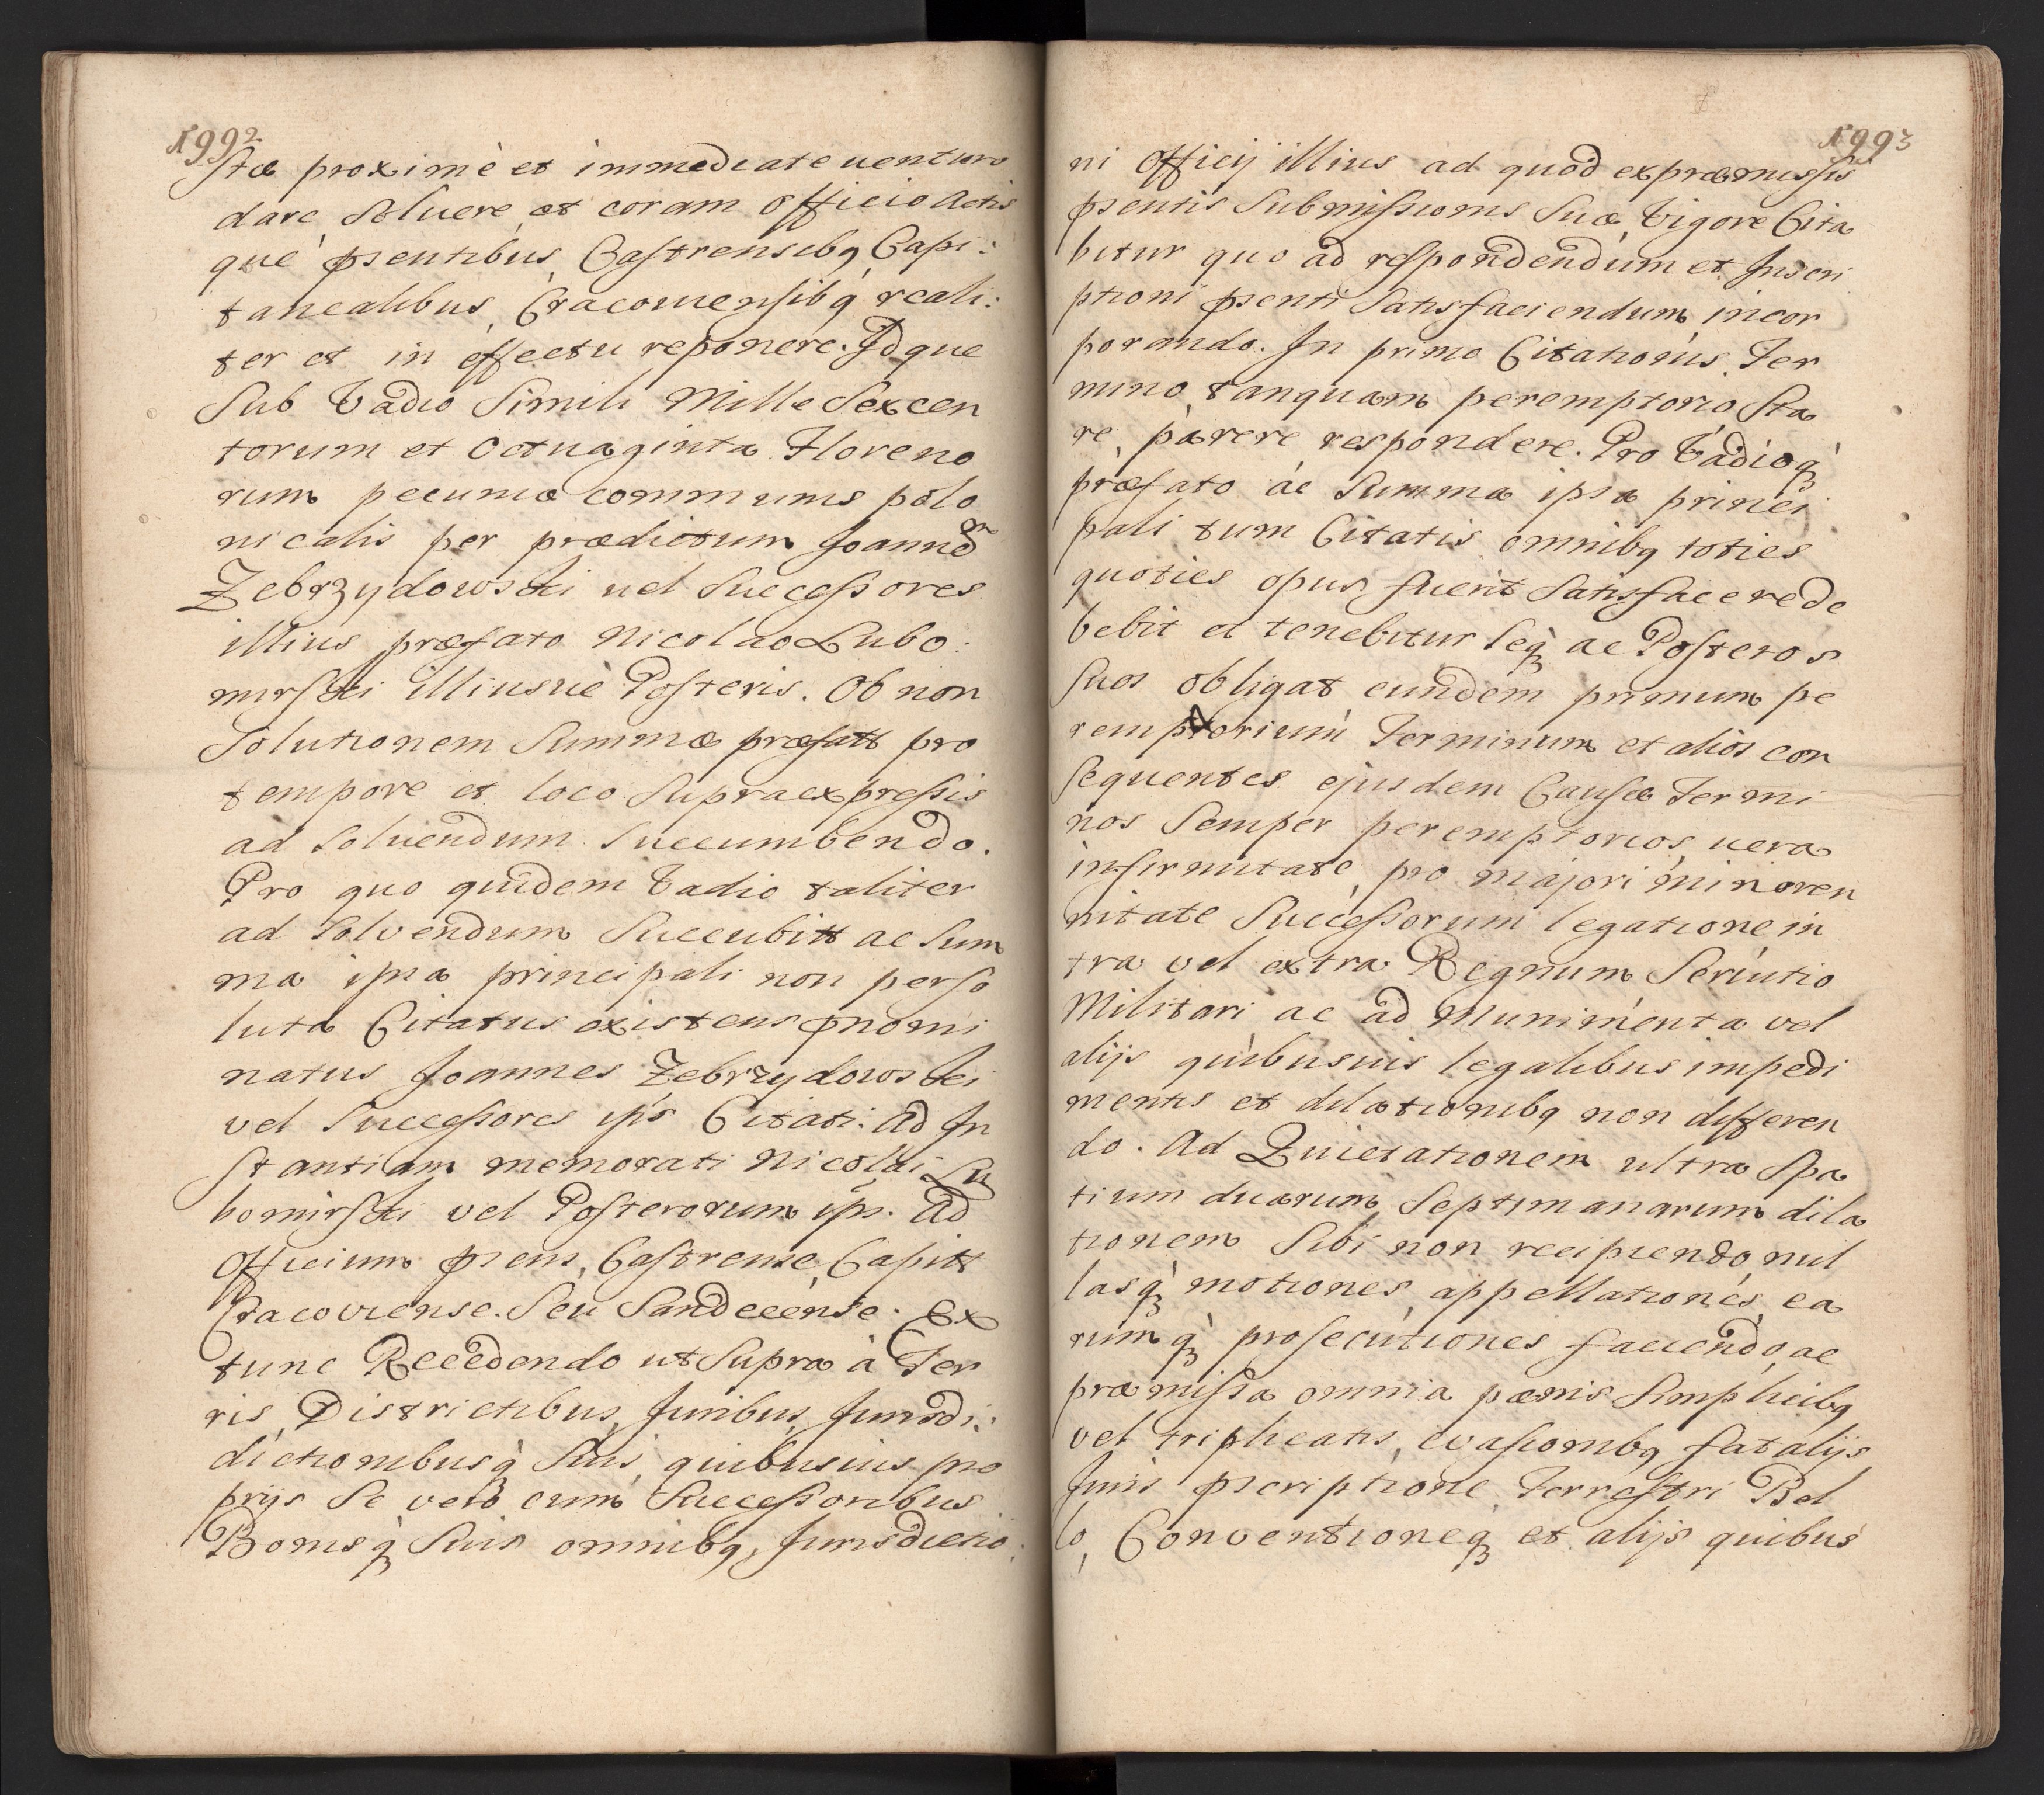 1992
stæ proximè et immediate uentura
dare Soluere et coram Officio Actis
que pñsentibus Castrensibq Capi:
tanealibus Cracouiensibq reali:
ter et in effectu reponere. Idque
Sub Vadio Simili Mille Sexcen
torum et Octuaginta Floreno
rum pecuniæ communis polo
nicalis per prædictum Joannem
Zebrzydowski uel Successores
illius præfato Nicolao Lubo:
mirski illiusuè Posteris. Ob non
Solutionem Summæ præfatæ pro
tempore et loco Supraexpressis
ad Soluendum Succumbendo.
Pro quo quidem Vadio taliter
ad Solvendum Succubitt ac Sum
ma ipsa principali non perso
luta Citatus existens pñomi
natus Joannes Zebrzydowski
vel Successores ips Citati. Ad In
stantiam memorati Nicolai Lu
bomirski vel Posterorum ips. Ad
Officium pñsens, Castrense, Capitt
Cracoviense. Seu Sandecense. Ex
tunc Recedendo ut Supra à Ter
ris Districtibus, Juribus Jurisdi:
dictionibusq Suis quibusuis pro
prijs Se vero cum Successoribus
Bonisq Suis omnibq, Jurisdictio:
1993
ni Officij illius ad quod expræmissis
pñsentis Submissionis Suæ Vigore Cita
bitur quo ad respondendum et Inscri
ptioni pñsenti Satisfaciendum incor
porando. In primo Citationis Ter
mino tanquam peremptorio Sta
re, parere respondere. Pro Vadioq
præfato ac Summa ipsa princi
pali tum Citatis omnibq toties
quoties opus fuerit Satisfacere de
bebit et tenebitur Seq ac Posteros
Suos obligat eundem primum pe
remptorium Terminum et alios con
sequentes ejusdem Causæ Termi
nos Semper peremptorios, uera
infirmitate, pro majori minoren
nitate Successorum legatione in
tra vel extra Regnum Seruitio
Militari ac ad Munimenta vel
alijs quibusuis legalibus impedi
mentis et dilationibq non differen
do. Ad Quietationem ultra Spa
tium duarum Septimanarum dila
tionem Sibi non recipiendo nul
lasq motiones appellationes, ea
rumq prosecutiones faciendo, ac
præmissa omnia pænis Simplicibq
vel triplicatis, evasionibq fatalijs
Juris pñscriptione, Terrestri Bel
lo, Conventioneq et alijs quibus